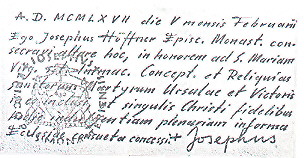 A. D. MCMLXVII die V mensis Februarii
Ego Josephus Höffner Episc. Monast. con-
secravi altare hoc, in honorem ad S. Mariam
Virg. Immac. Concept. et Reliquias
sanctorum Martyrum Ursulae et Victoris
in eo inclusi et singulis Christi fidelibus
indulgentiam plenariam in forma
Ecclesiae consueta concessi + Josephus